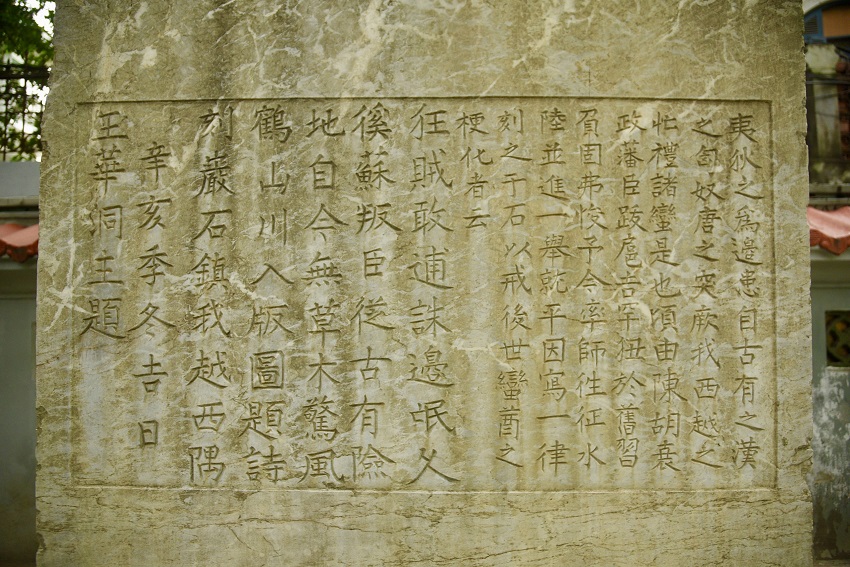 夷狄之爲邊患自古有之漢
之匈奴唐之突厥我西越之
忙禮諸蠻是也頃由陳胡衰
政藩臣跋扈吉罕狃於舊習
負固弗悛予今率師往征水
陸並進一舉就平因寫一律
刻之于石以戒後世蠻酋之
梗化者云
狂賊敢逋誅邊氓久
徯蘇叛臣從古有險
地自今無草木驚風
鶴山川入版圖題詩
刻巖石鎮我越西隅
辛亥季冬吉日
玉華洞主題